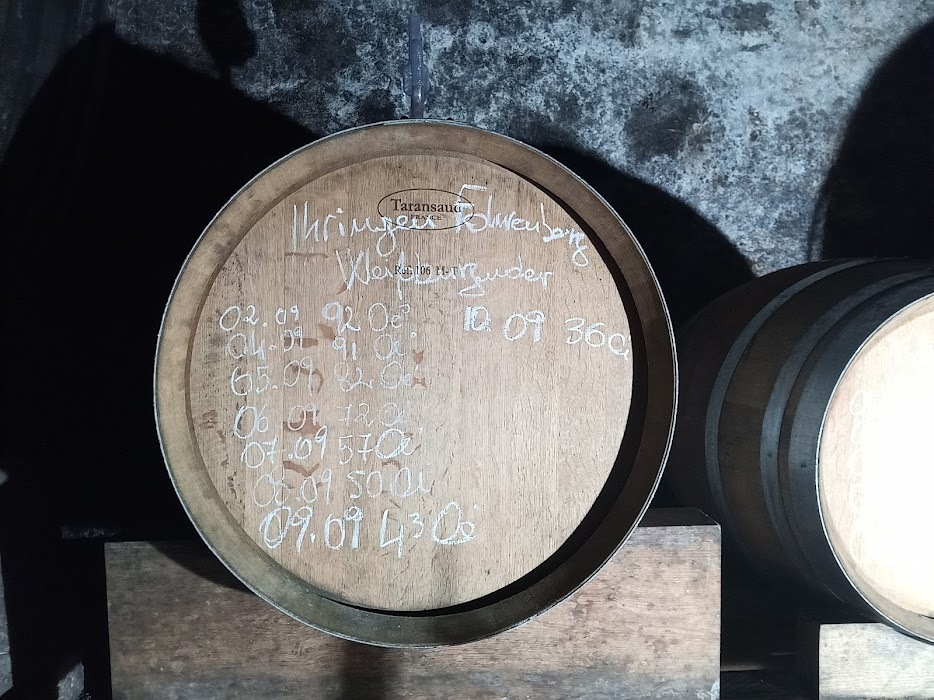 Taransaud
FRANCE
Ihringer Fohrenberg
Weißburgunder
02.09 92 Oe°
04.09 91 Oe°
05.09 82 Oe°
06 09 72 Oe
07.09 57 Oe
08.09 50 Oe
09.09 43 Oe
10 09 36 Oe